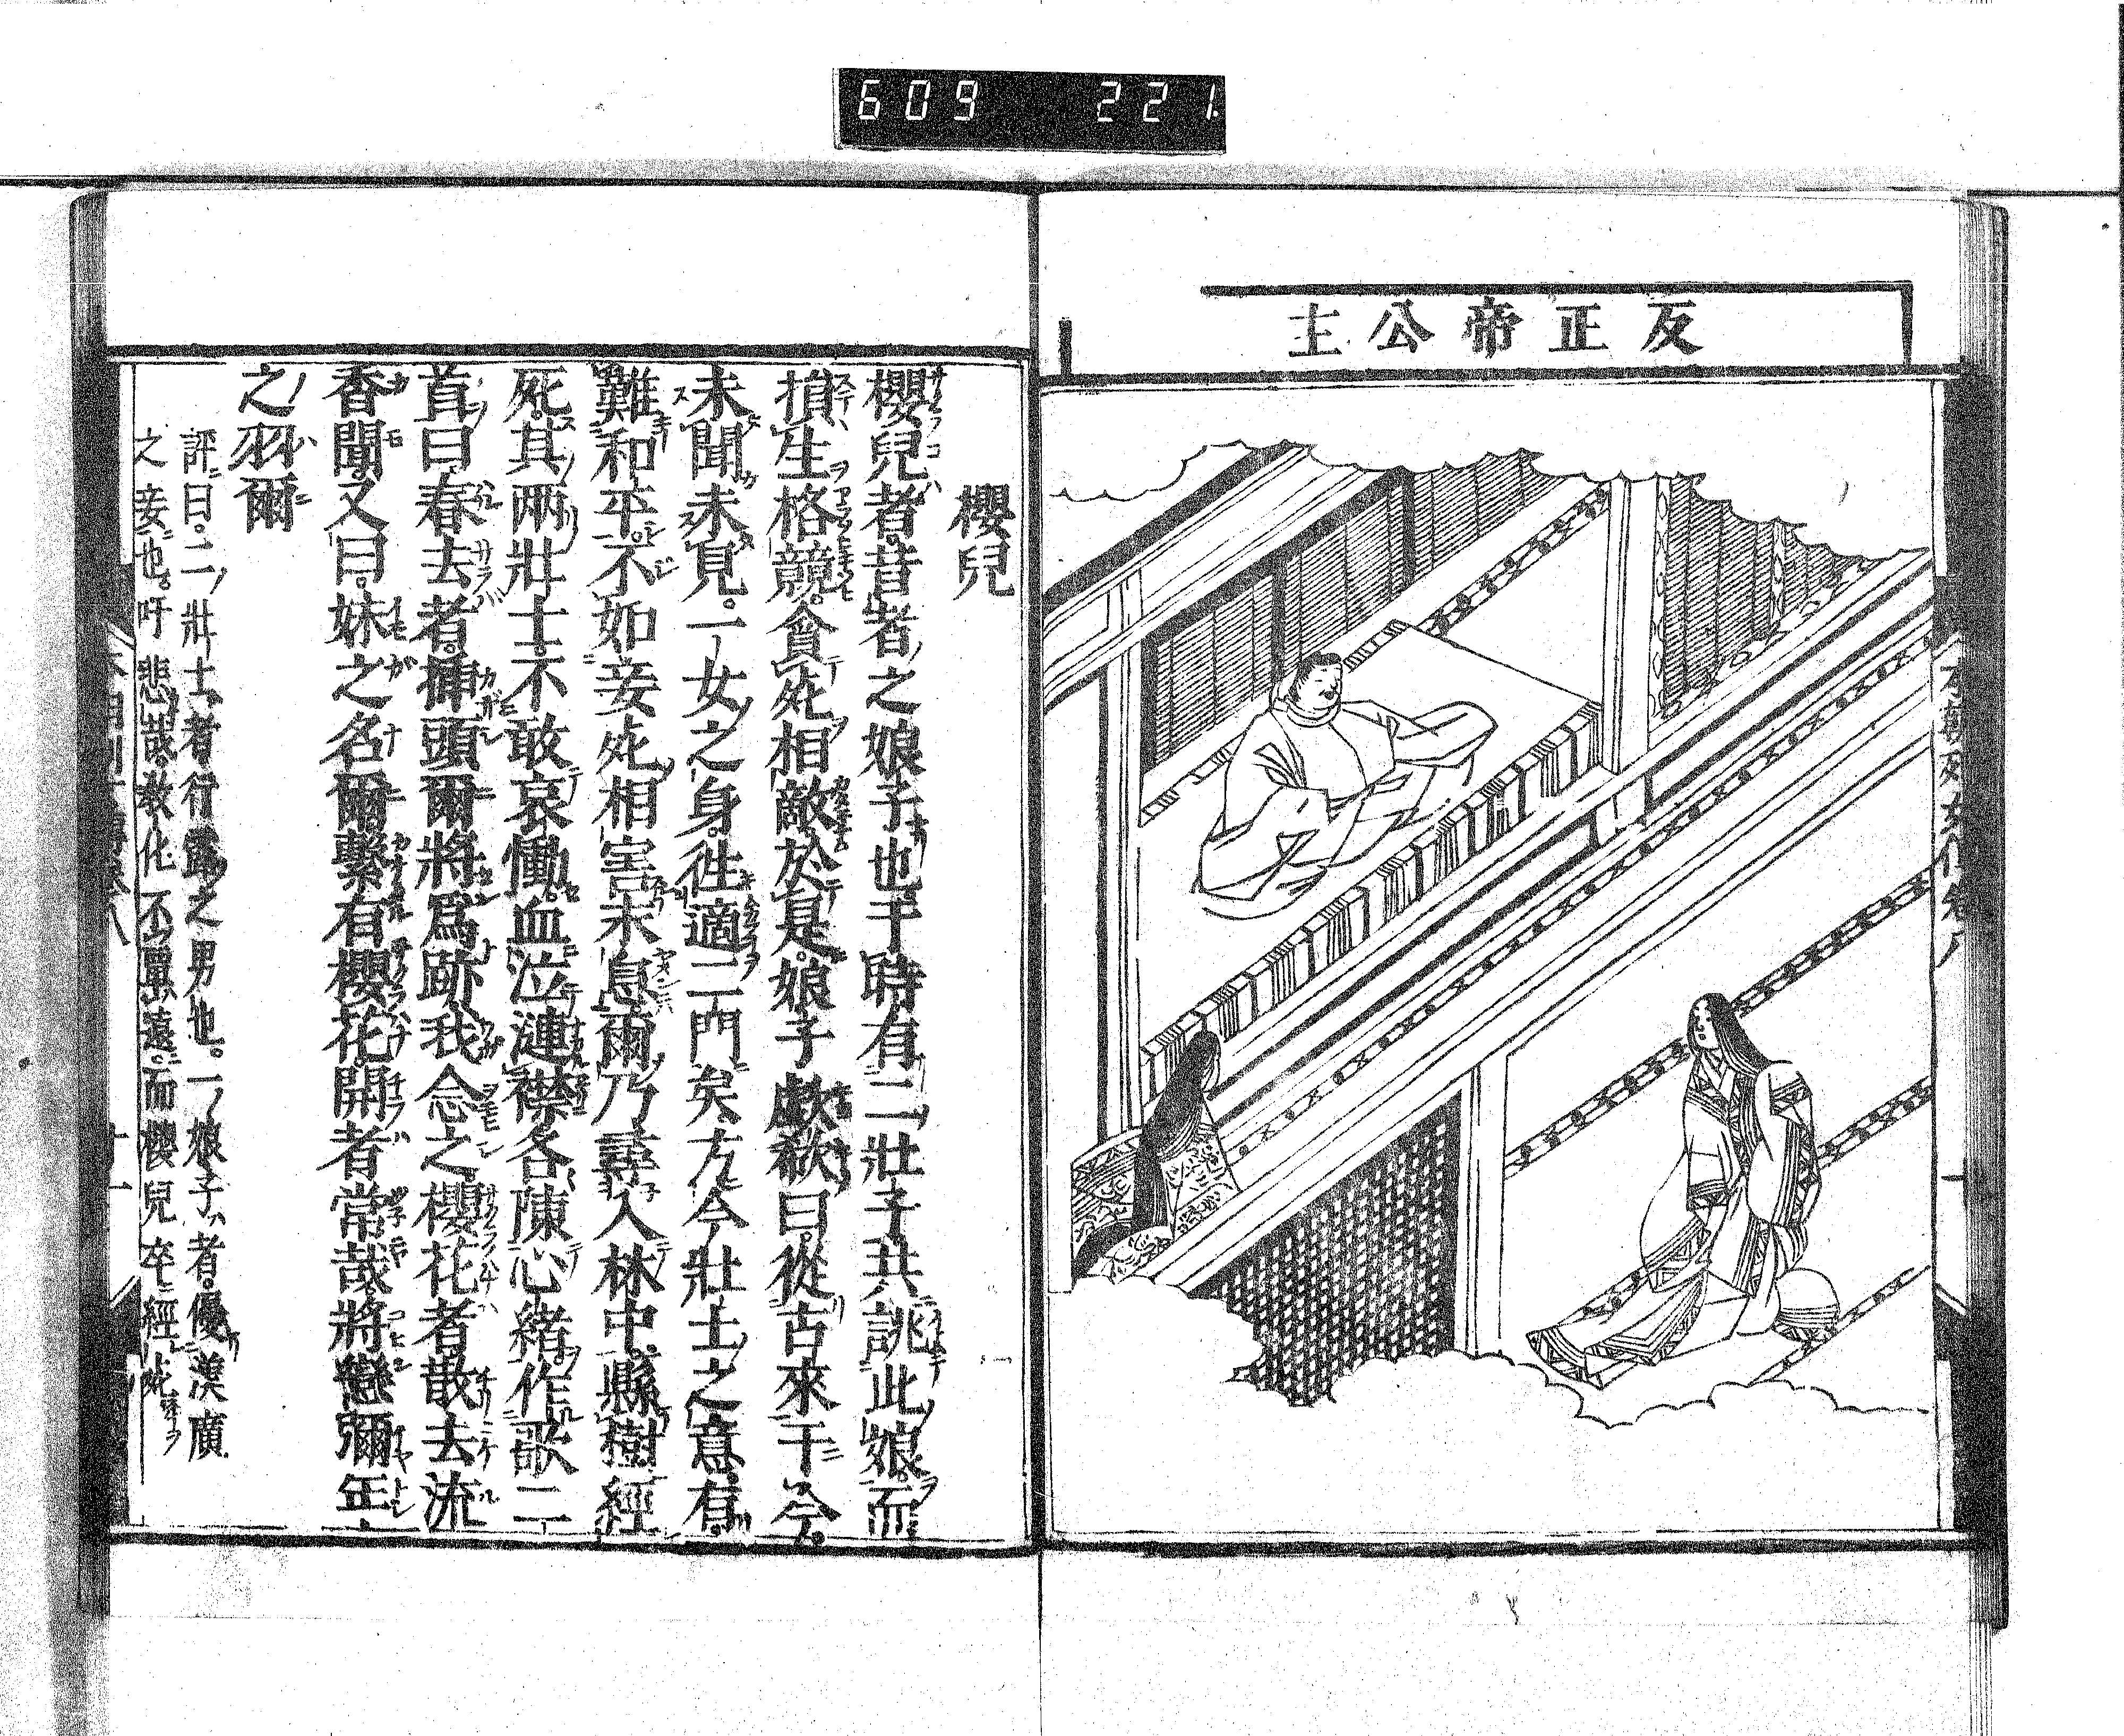 609 221.
反正帝公主
櫻兒
櫻兒者昔者之娘子也于時有二壯子共誂此娘而
損生格競貪死相敵於是娘子歔欷曰從古來于今
未聞未見一女之身徃適二門矣方今壯士之意有
難和平不如妾死相害永息爾乃尋入林中縣樹經
死其兩壯士不敢哀慟血泣漣襟各陳心緒作歌二
首曰春去者挿頭爾將爲跡我念之櫻花者散去流
香聞又曰妹之名爾繫有櫻花開者常哉將戀彌年
之羽爾
評曰二壯士者行露之男也一娘子者優漢廣
之妾也吁悲哉教化不單遠而櫻兒卒經死